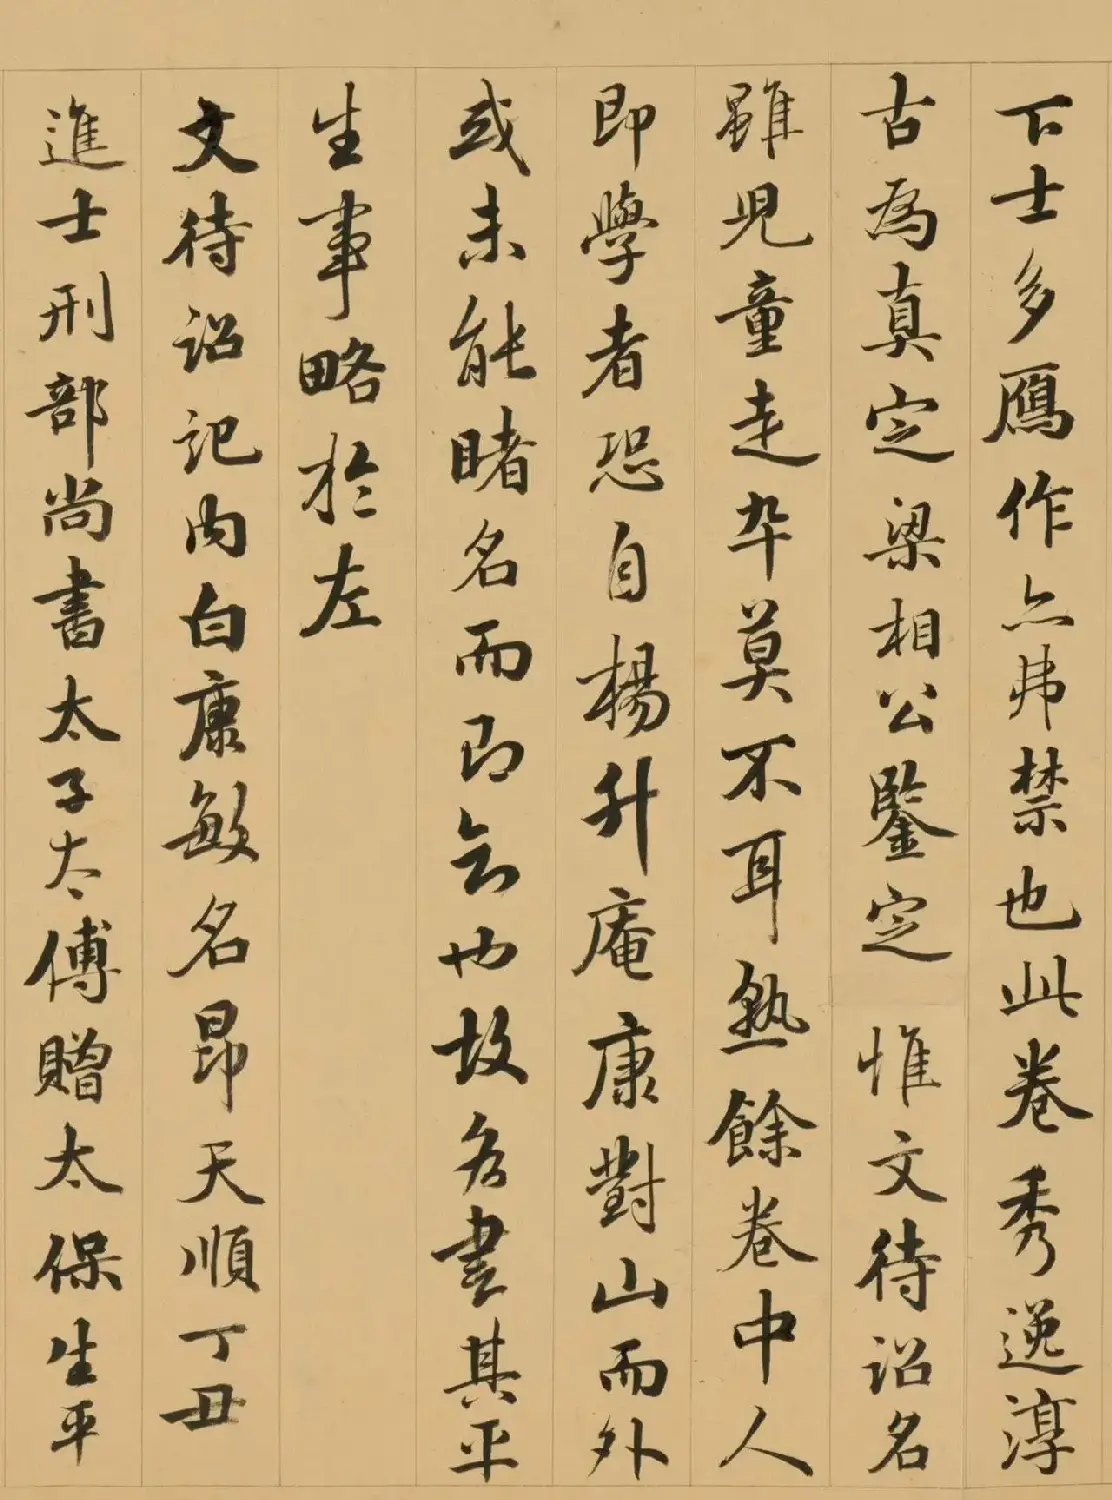 下士多贋作亦弗禁也此卷秀逸淳
古為真定梁相公鑒定惟文待詔名
雖児童走卒莫不耳熟餘卷中人
即學者恐自楊升庵康對山而外
或未能睹名而即會也故為書其平
生事略於左
文待詔記内白康敏名昂天順丁丑
進士刑部尚書太子太傅贈太保生平